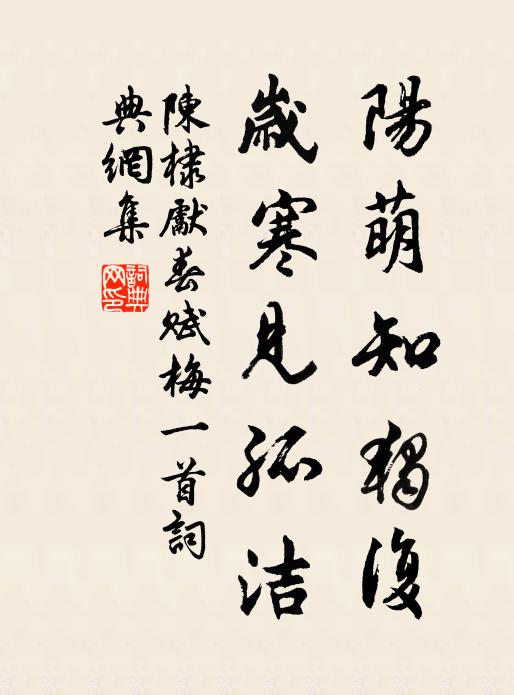 陽萌知獨復
歲寒見孤洁
陳棣獻春賦梅一首詞
典網集
詞典
网印